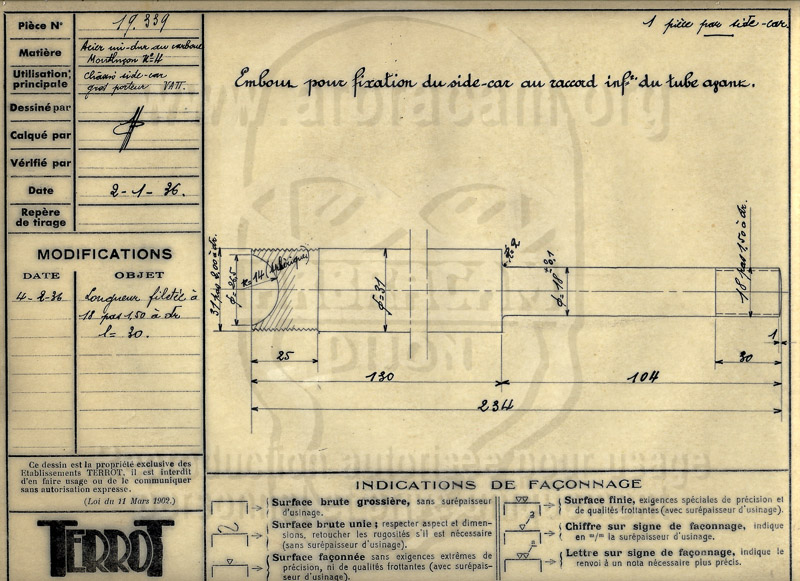 Pièce N° 19.339
Matière Acier mi-dur au carbone
Montluçon N°4
Utilisation principale Chassis side-car
gros porteur VATT.
Dessiné par
Calqué par
Vérifié par
Date 2-1-36.
Repère de tirage
MODIFICATIONS
DATE OBJET
4-2-36 Longueur filetée à
18 pas 1,50 à dr
l= 30.
Ce dessin est la propriété exclusive des
Etablissements TERROT, il est interdit
d'en faire usage ou de le communiquer
sans autorisation expresse.
(Loi du 11 Mars 1902.)
TERROT
1 pièce par side-car.
Embout pour fixation du side-car au raccord infr. du tube avant.
www.amoracam.org
31 pas 2,00 à dr.
ϕ=26,5
R=14 (sphérique)
ϕ=31
ϕ=18
18 pas 1,50 à dr.
1
25
30
130
104
234
FABRICATION
DIJON
reproduction autorisée pour usage
INDICATIONS DE FAÇONNAGE
Surface brute grossière, sans surépaisseur
d'usinage.
Surface brute unie ; respecter aspect et dimen-
sions, retoucher les rugosités s'il est nécessaire
(sans surépaisseur d'usinage).
Surface façonnée sans exigences extrêmes de
précision, ni de qualités frottantes (avec surépais-
seur d'usinage).
Surface finie, exigences spéciales de précision et
de qualités frottantes (avec surépaisseur d'usinage).
Chiffre sur signe de façonnage, indique
en =/= la surépaisseur d'usinage.
Lettre sur signe de façonnage, indique le
renvoi à un nota nécessaire plus précis.